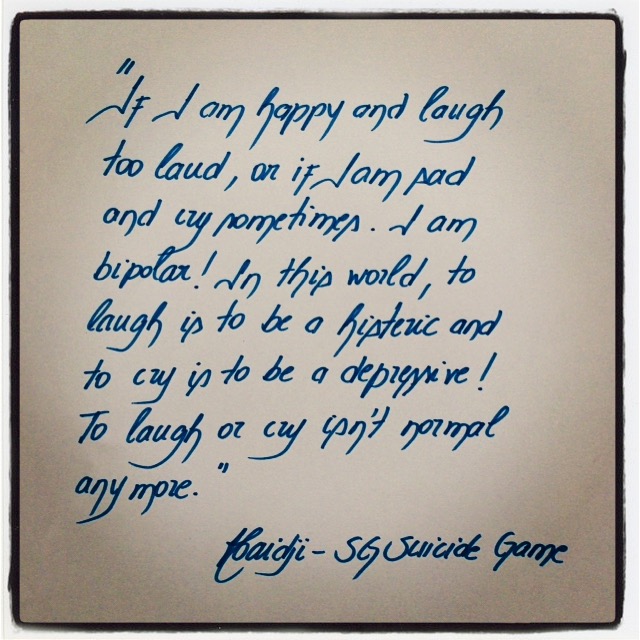 "If I am happy and laugh
too laud, or if I am sad
and cry sometimes. I am
bipolar! In this world, to
laugh is to be a histeric and
to cry is to be a depressive!
To laugh or cry isn't normal
anymore."
Haidji - SG Suicide Game